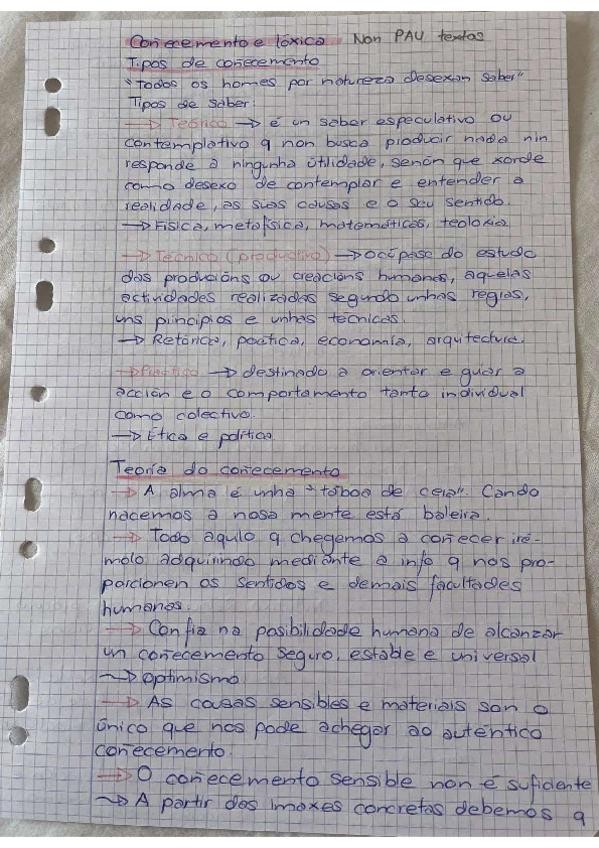 Coñecemento e lóxica Non PAU textos
Tipos de coñecemento
"Todos os homes por natureza desexan saber"
Tipos de saber:
→ Teórico → é un saber especulativo ou
contemplativo q non busca producir nada nin
responde a ningunha utilidade, senón que xorde
como desexo de contemplar e entender a
realidade, as súas causas e o seu sentido.
→ Física, metafísica, matemáticas, teoloxía
→ Técnico (produtivo) → ocúpase do estudo
das producións ou creacións humanas, aquelas
actividades realizadas segundo unhas regras,
uns principios e unhas técnicas.
→ Retórica, poética, economía, arquitectura.
→ Práctico → destinado a orientar e guiar a
acción e o comportamento tanto individual
como colectivo.
→ Ética e política
Teoría do coñecemento
→ A alma é unha "táboa de cera". Cando
nacemos a nosa mente está baleira.
→ Todo aquilo q chegemos a coñecer iré-
molo adquirindo mediante a info q nos pro-
porcionen os sentidos e demais facultades
humanas.
→ Confía na posibilidade humana de alcanzar
un coñecemento seguro, estable e universal
~> Optimismo
→ As cousas sensibles e materiais son o
único que nos pode achegar ao auténtico
coñecemento.
→ O coñecemento sensible non é suficiente
~> A partir das imaxes concretas debemos q